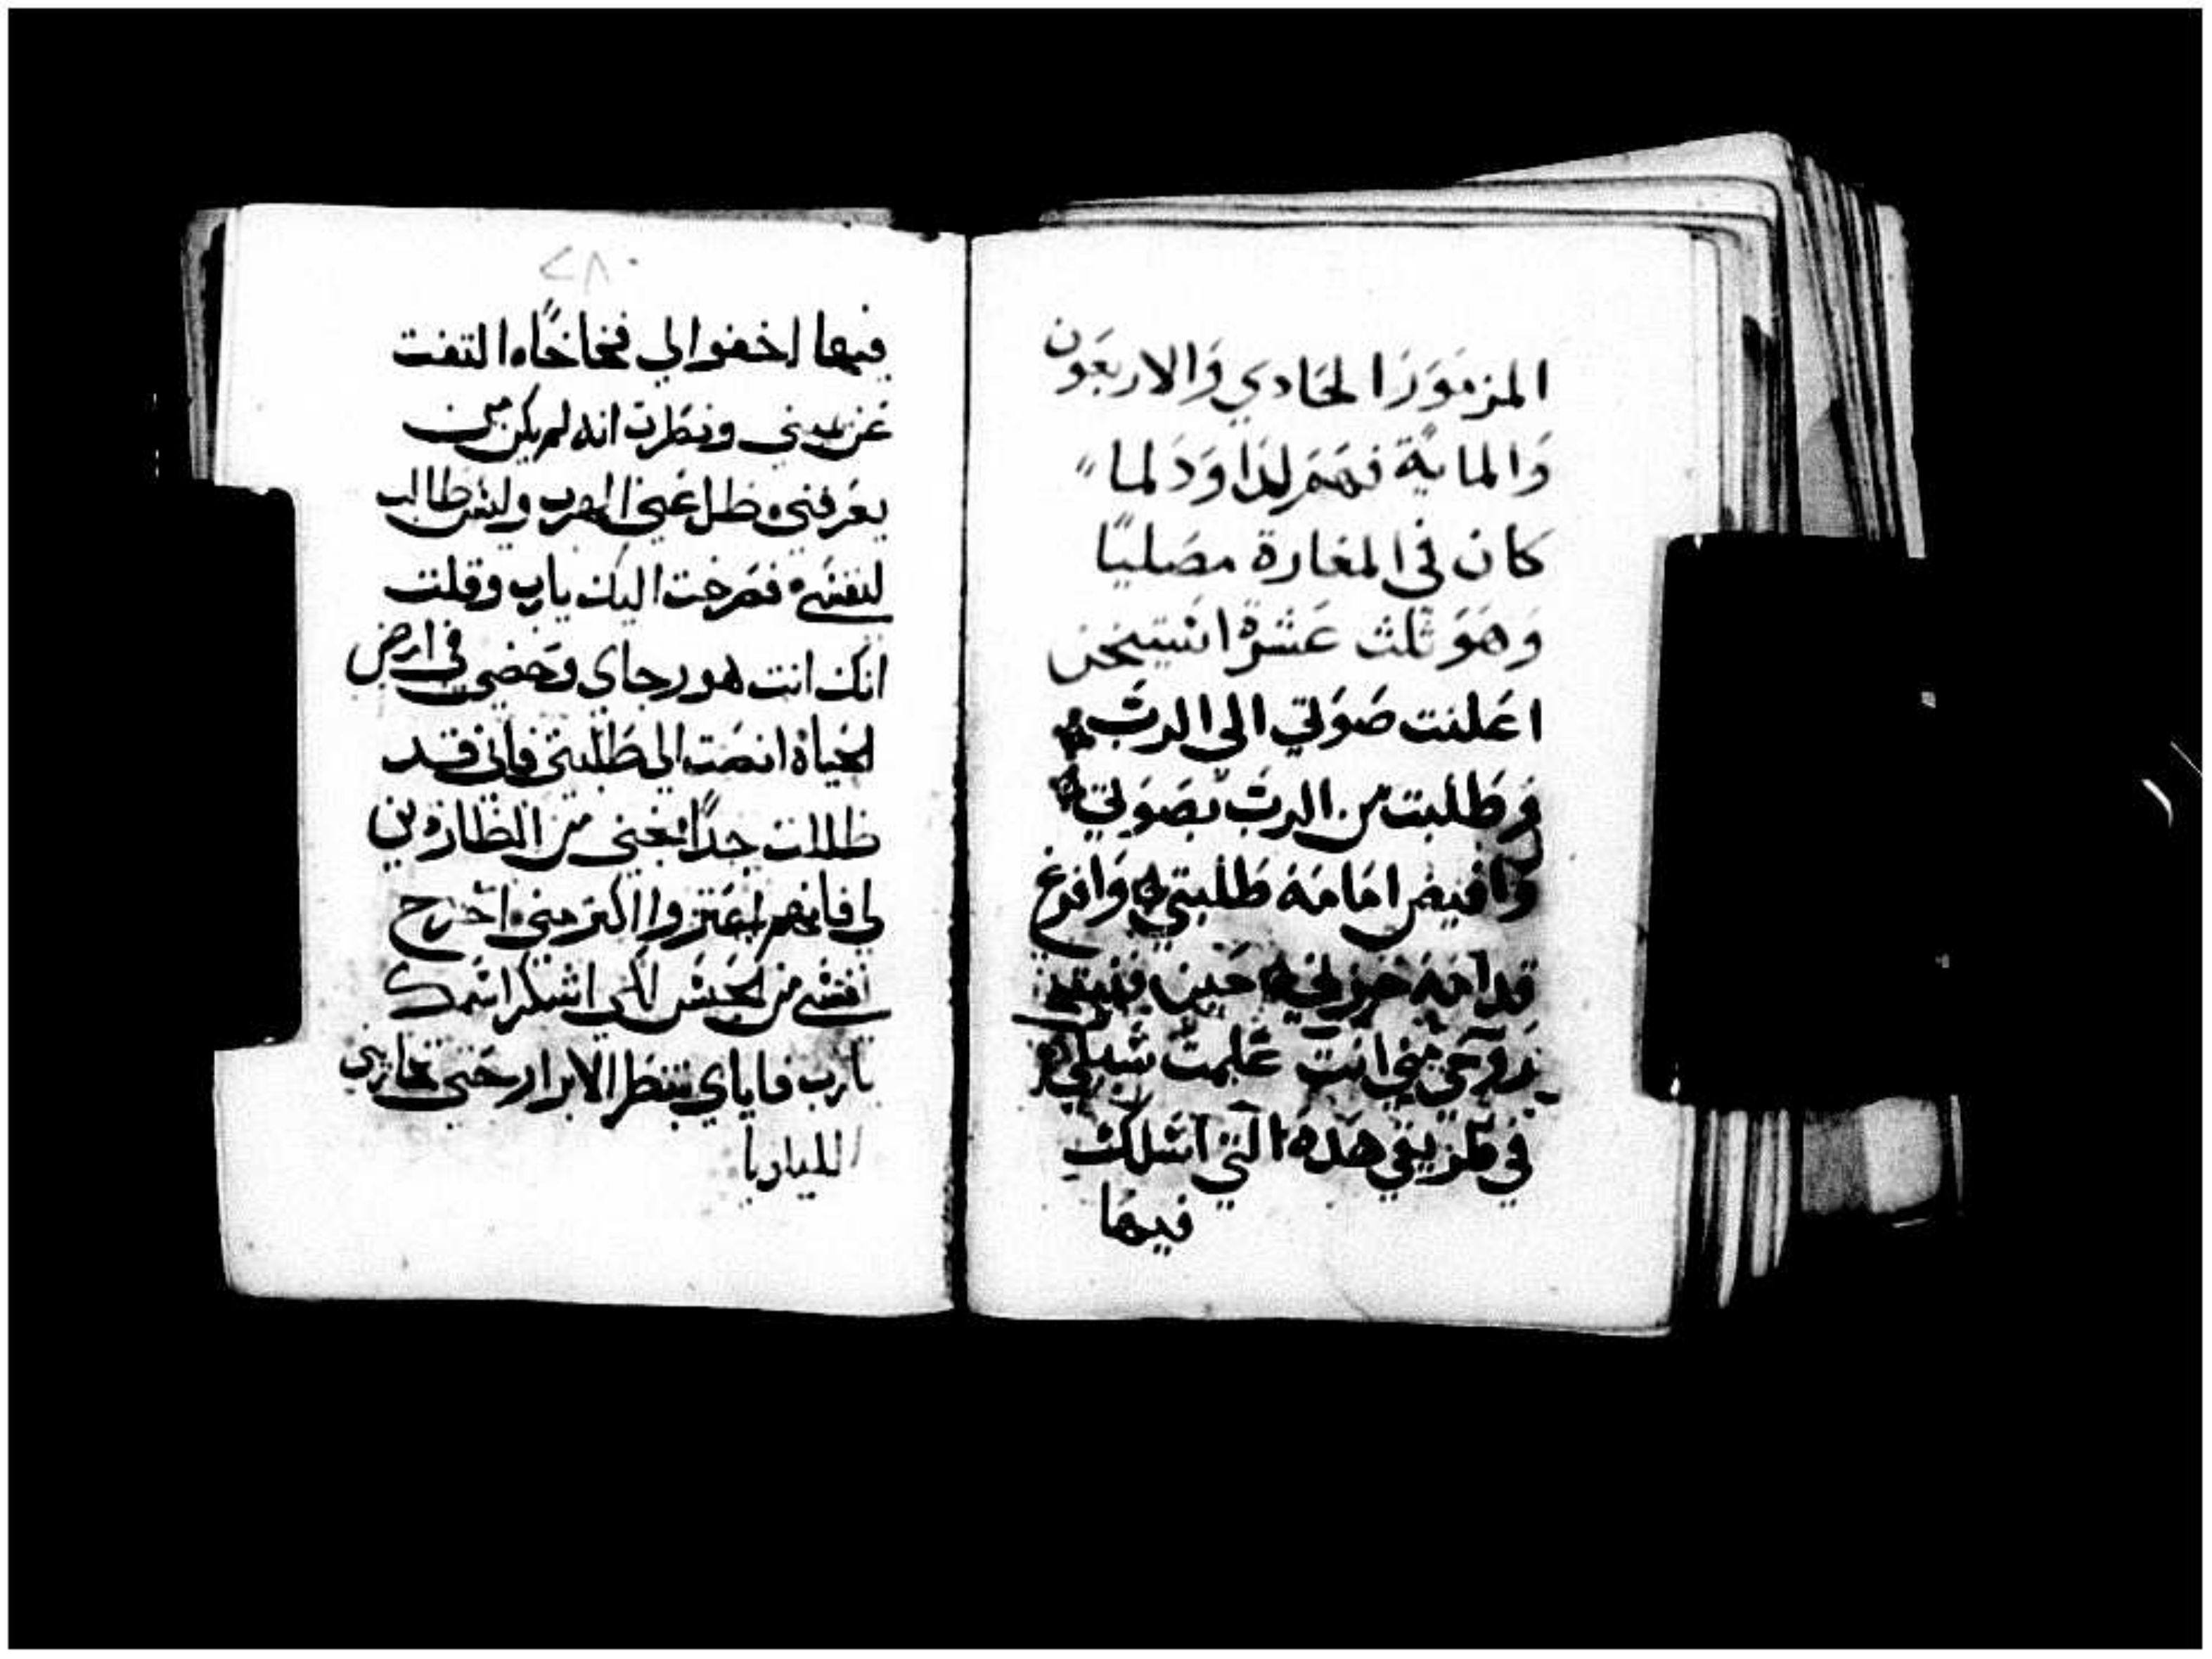 المزمور الحادي والاربعون
والماية فهم لداود لما
كان في المغارة مصليًا
وهو ثلث عشرة استيخن
اعلنت صوتي الى الرب
وطلبت من الرب بصوتي
وافيض امامه طلبتي وافرغ
قدامه حزني حين فنيت
روحي مني انت علمت سبلي
في طريقي هذه التي اسلك
فيها
٢٨٠
فيها اخفوا لي فخاخًا التفت
عن يميني ونظرت انه لم يكن من
يعرفني وظل عني الهرب وليس طالب
لنفسي فصرخت اليك يارب وقلت
انك انت هو رجاي وحضي في ارض
الحياة انصت الى طلبتي فاني قد
ظللت جدًا نجني من الطاردين
لي فانهم اعتزوا اكثر مني اخرج
نفسي من الحبس لكي اشكر اسمك
يارب فاياي ينتظر الابرار حتى تجازيني
الليلويا